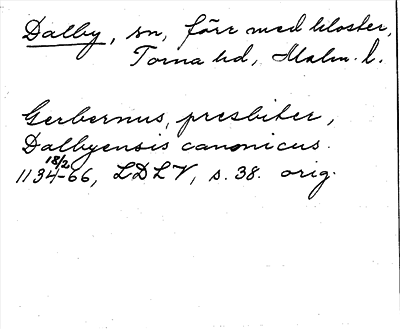 Dalby, sn, förr med kloster,
Torna hd, Malm. l.
Gerbernus, presbiter,
Dalbyensis canonicus.
18/2
1134-66, LDLV, s. 38. orig.